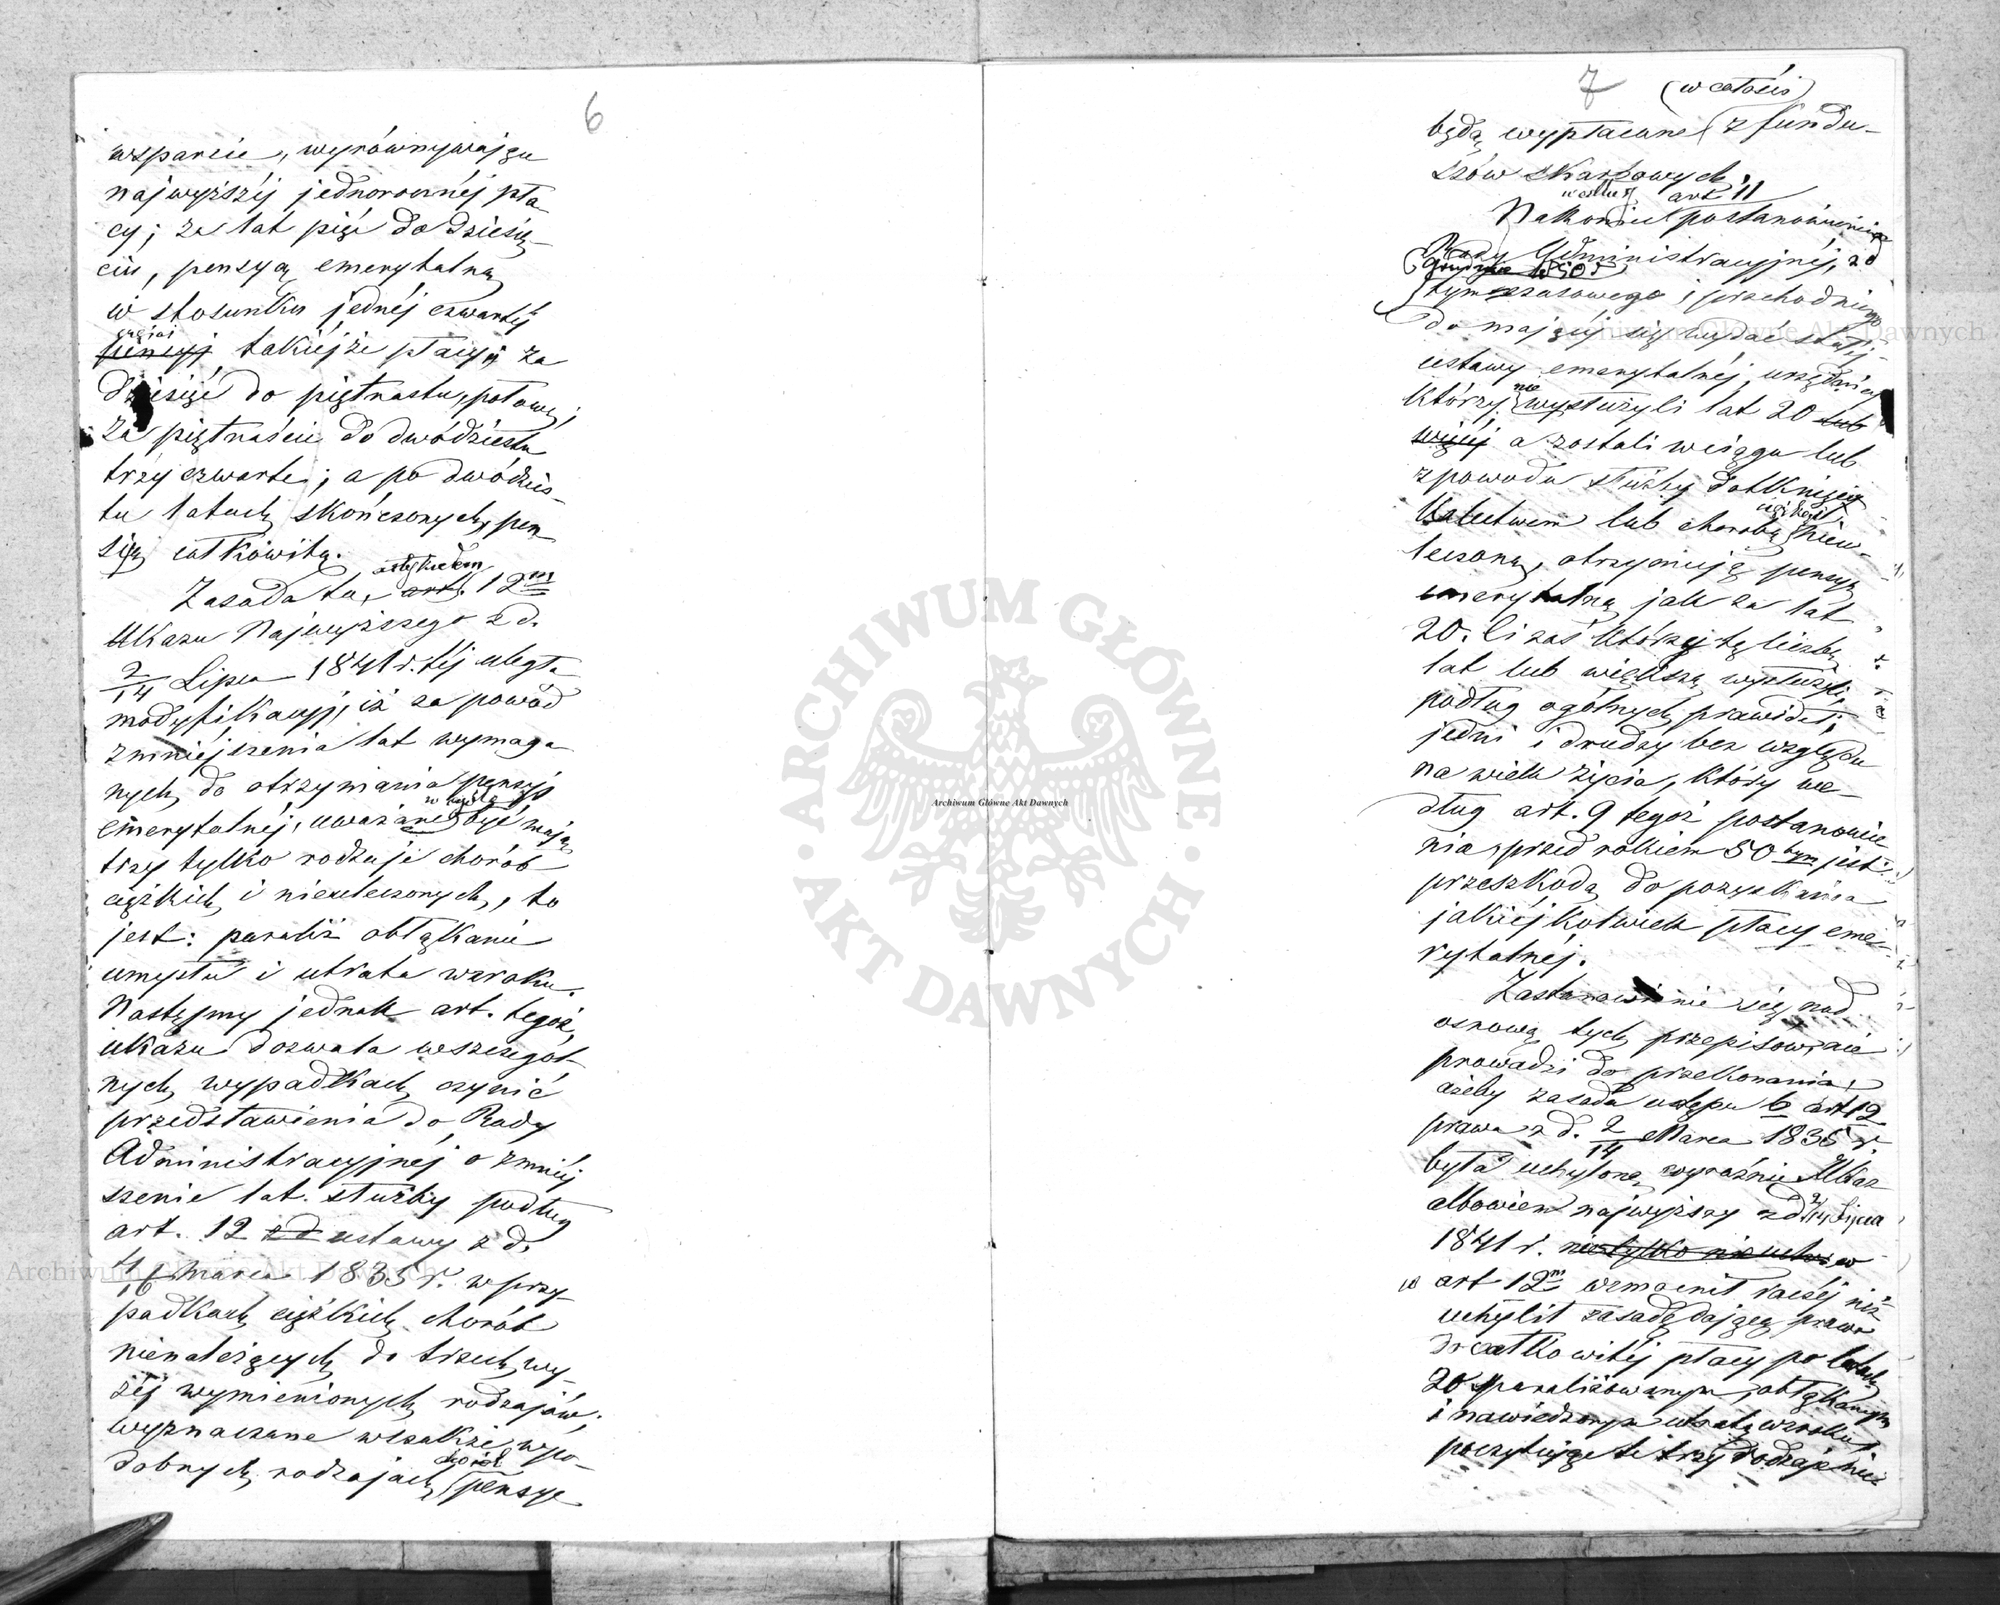 6
wsparcie, wyrównywające
najwyższéj jednorocznéj pła-
cy; za lat pięć do dziesię-
ciu, pensyą emerytalną
w stosunku jednéj czwartéj
części
takiéjże płacy; za
dziesięć do piętnastu, połowę;
za piętnaście do dwódziestu
trzy czwarte; a po dwódzies-
tu latach skończonych, pen-
sję całkowitą.
artykułem
Zasada ta, art. 12m
Ukazu Najwyższego z d.
2/14 Lipca 1841 r. téj uległa
modyfikacyj, iż za powód
zmniejszenia lat wymaga-
nych do otrzymania pensyi
w ogóle
emerytalnéj, uważane być mają
trzy tylko rodzaje chorób
ciężkich i nieuleczonych, to
jest: paraliż obłąkanie
umysłu i utrata wzroku.
Następny jednak art. tegoż
ukazu dozwala w szczegól-
nych wypadkach czynić
przedstawienia do Rady
Administracyjnéj o zmniéj
szenie lat służby podług
art. 12 z d ustawy z d.
4/16 Marca 1835 r. w przy-
padkach ciężkich chorób
nienależących do trzech wy-
żéj wymienionych rodzajów;
wyznaczane wszakże w po-
chorób
dobnych rodzajach pensye
7
(w całości)
będą wypłacane z fundu-
szów skarbowych
według art 11
Nakoniec postanowienia
Rady Administracyjnéj, z d
grudnia 1850 r
tymczasowego i przechodniego
do mającéj się wydać stałéj
ustawy emerytalnéj, urzędnicy
nie
którzy wysłużyli lat 20 lub
więcéj a zostali w ciągu lub
z powodu służby dotknięci
ciężkością
Kalectwem lub chorobą nieu-
leczoną, otrzymują pensyą
emerytalną jak za lat
20. Ci zaś którzy tę liczbę
lat lub większą wysłużyli,
podług ogólnych prawideł;
jedni i drudzy bez względu
na wiek życia, który we-
dług art. 9 tegoż postanowie
nia, przed rokiem 50tym jest
przeszkodą do pozyskania
jakiéjkolwiek płacy eme-
rytalnéj.
Zastanowienie się nad
osnową tych przepisów, nie
prowadzi do przekonania,
ażeby zasada ustępu b art 12
prawa z d. 2/14 Marca 1835 r.
była uchyloną wyraźnie Ukaz
albowiem najwyższy z d 2/14 Lipca
1841 r. nie tylko nie uchy w
w art 12m wzmocnił raczéj niż
uchylił zasadę dającą prawo
do całkowitéj płacy po latach
20 sparaliżowanym, obłąkanym
i nawiedzonym utratą wzroku
poczytując te trzy rodzaje nie